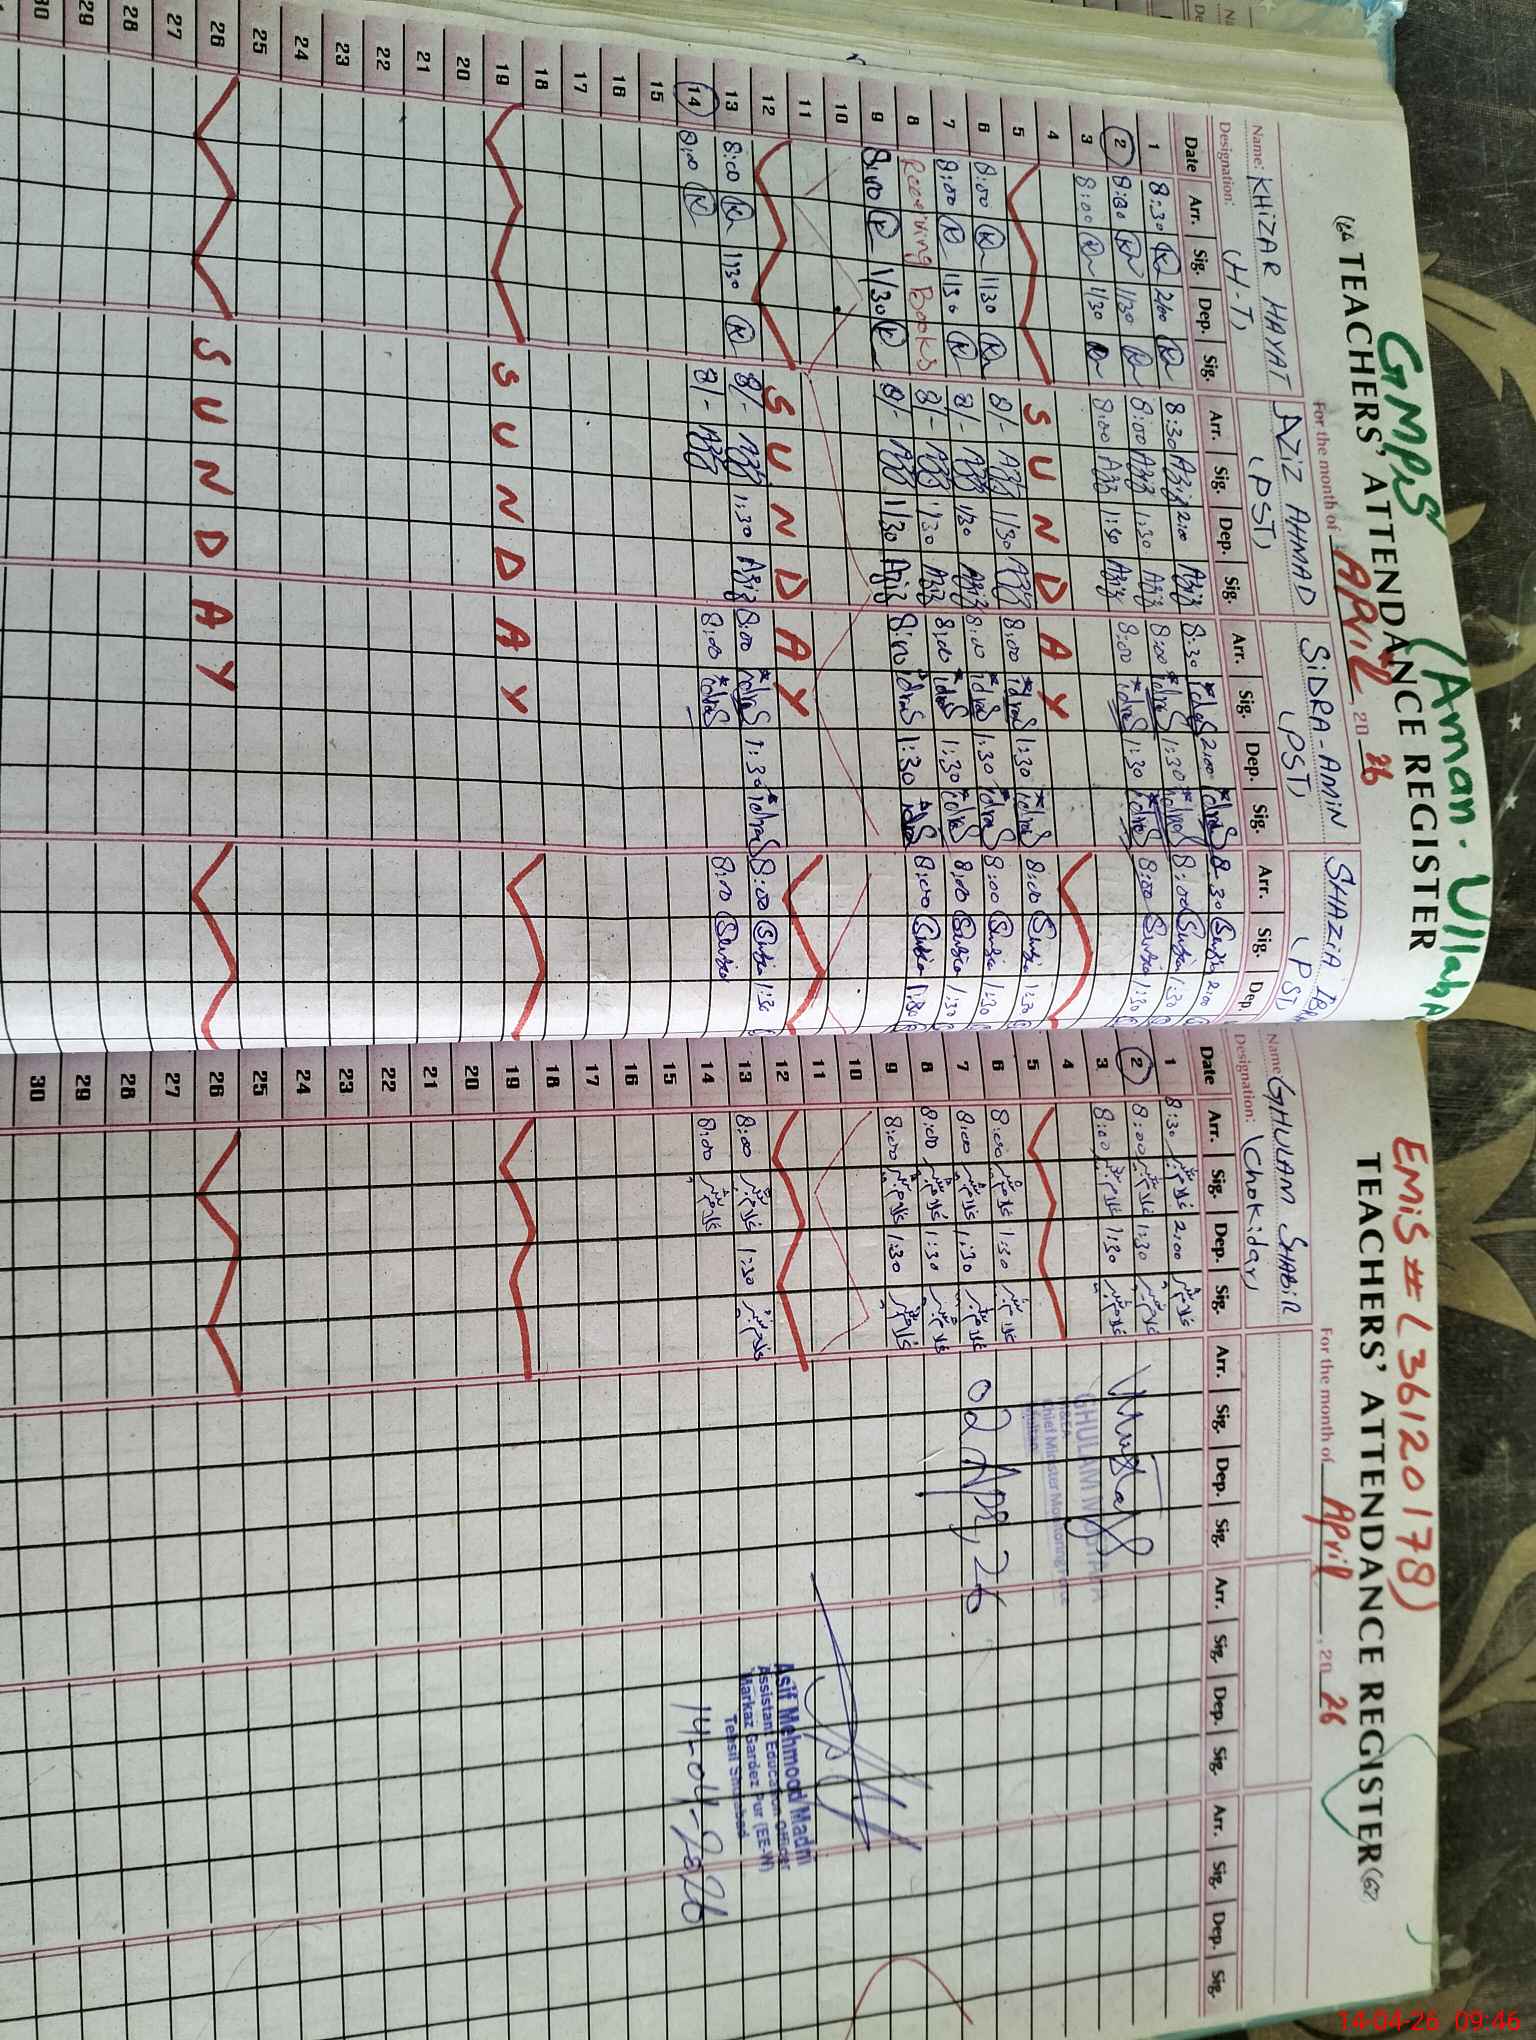 GMPS (Aman Ullah
(64 TEACHERS' ATTENDANCE REGISTER
For the month of APRIL 20 26
Name: KHIZAR HAYAT AZIZ AHMAD SIDRA-AMIN SHAZIA
Designation: (H-T) (PST) (PST) (PST)
Date Arr. Sig. Dep. Sig. Arr. Sig. Dep. Sig. Arr. Sig. Dep. Sig. Arr. Sig. Dep.
1 8:30 2:00 8:30 Aziz 2:00 Aziz 8:30 2:00 8:30 2:00
2 8:30 1/30 8:00 Aziz 1:30 Aziz 8:00 1:30 8:00 1:30
3 8:00 1/30 8:00 Aziz 1:30 Aziz 8:00 1:30 8:00 1:30
4
5 SUNDAY
6 8:00 1/30 8/- 1/30 8:00 1:30 8:00 1:30
7 8:00 1/30 8/- 1/30 8:00 1:30 8:00 1:30
8 Receiving Books 8/- 1/30 8:00 1:30 8:00 1:30
9 8:00 1/30 8/- 1/30 Aziz 8:00 1:30 8:00 1:30
10
11
12 SUNDAY
13 8:00 1/30 8/- 1:30 Aziz 8:00 1:30 8:00 1:30
14 8:00 8/- 8:00 8:00
15
16
17
18
19 SUNDAY
20
21
22
23
24
25
26 SUNDAY
27
28
29
30
EMIS # (36120178)
TEACHERS' ATTENDANCE REGISTER (62)
For the month of April, 20 26
Name GHULAM SHABIR
Designation: (Chokidar)
Date Arr. Sig. Dep. Sig. Arr. Sig. Dep. Sig. Arr. Sig. Dep. Sig. Arr. Sig. Dep. Sig.
1 8:30 غلام شبیر 2:00 غلام شبیر
2 8:00 غلام شبیر 1:30 غلام شبیر
3 8:00 غلام شبیر 1:30 غلام شبیر
4
5
6 8:00 غلام شبیر 1:30 غلام شبیر
7 8:00 غلام شبیر 1:30 غلام شبیر
8 8:00 غلام شبیر 1:30 غلام شبیر
9 8:00 غلام شبیر 1:30 غلام شبیر
10
11
12
13 8:00 غلام شبیر 1:30 غلام شبیر
14 8:00 غلام شبیر
15
16
17
18
19
20
21
22
23
24
25
26
27
28
29
30
GHULAM MUSTAFA
Chief Minister Monitoring Force
Multan
02 Apr, 26
Asif Mehmood Madni
Assistant Education Officer
Markaz Gardez Pur (EE-W)
Tehsil Shujabad
14-04-2026
14-04-26 09:46